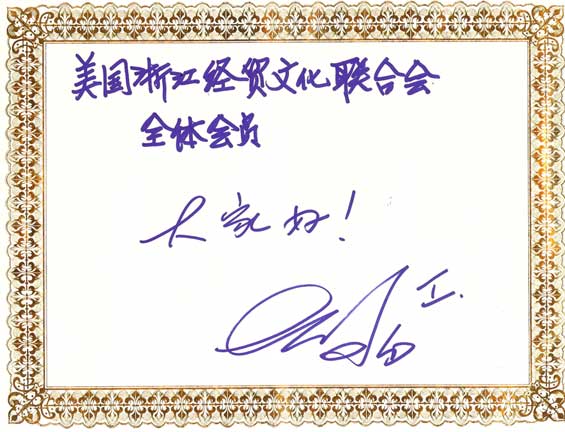 美国浙江经贸文化联合会
全体会员
大家好！